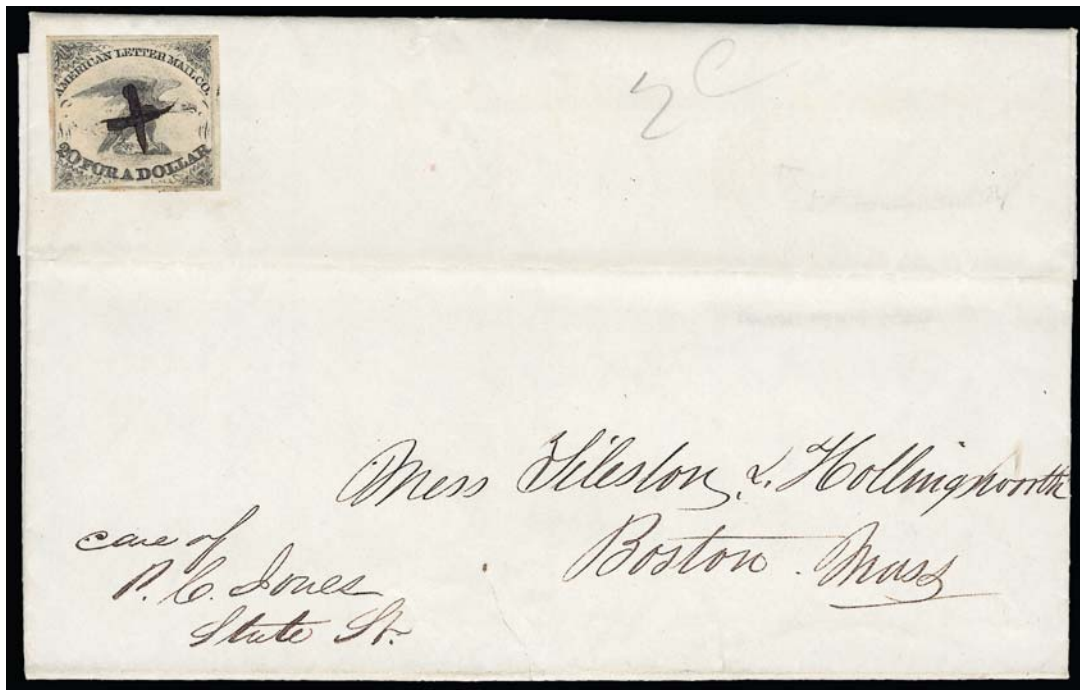 AMERICAN LETTER MAIL CO.
20 FOR A DOLLAR
Mess Tileston & Hollingsworth
Boston. Mass
care of
P. C. Jones
State St.